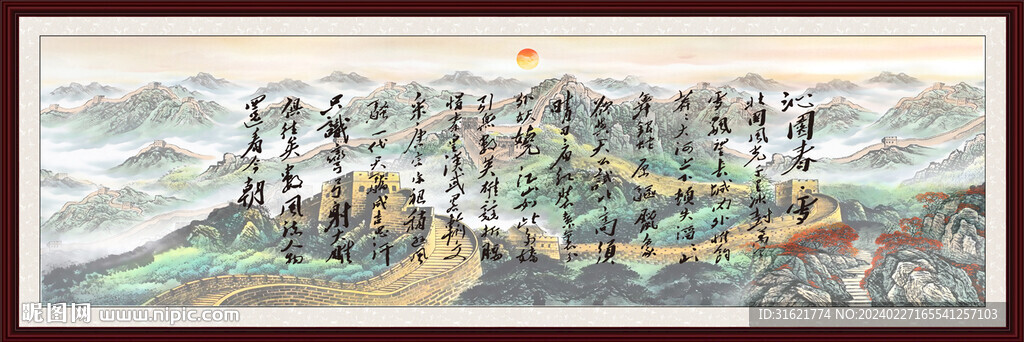 沁園春·雪
北国風光千里冰封万里
雪飄望长城内外惟馀
莽莽大河上下顿失滔滔山
舞銀蛇原驰蜡象
欲与天公試比高須
晴日看红装素裹分
外妖娆江山如此多娇
引無數英雄競折腰
惜秦皇漢武略輸文
采唐宗宋祖稍逊風
骚一代天骄成吉思汗
只識彎弓射大雕
俱往矣數風流人物
還看今朝
昵图网 www.nipic.com
ID:31621774 NO:20240227165541257103